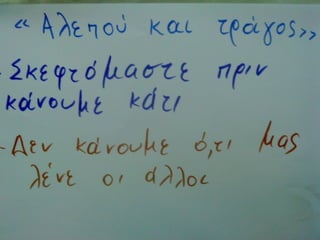 «Αλεπού και τράγος»
- Σκεφτόμαστε πριν
κάνουμε κάτι
- Δεν κάνουμε ό,τι μας
λένε οι άλλοι